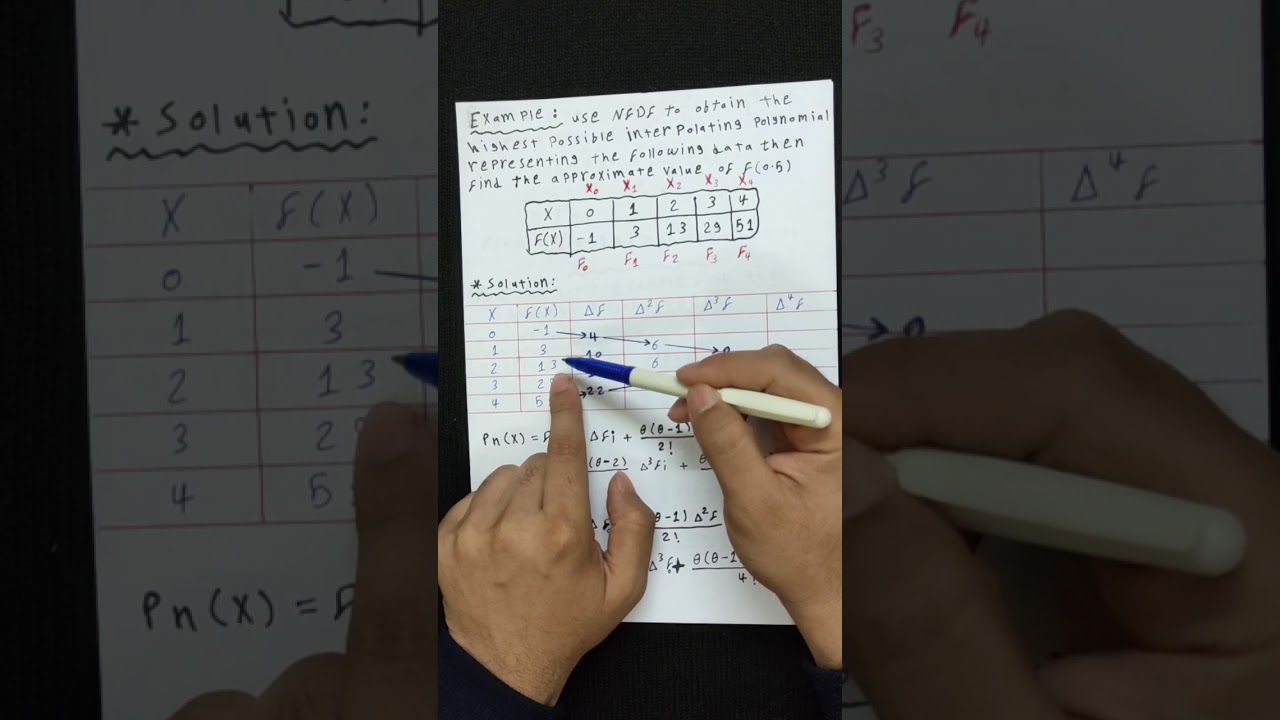 Example: use NFDF to obtain the
highest possible interpolating polynomial
representing the following data then
find the approximate value of f(0.5)
X0 X1 X2 X3 X4
X 0 1 2 3 4
F(X) -1 3 13 29 51
F0 F1 F2 F3 F4
* Solution:
X F(X) Δf Δ²f Δ³f Δ⁴f
0 -1 4
1 3 10 6
2 13 6
3 2 22
4 5
Pn(X) = F Δfi + θ(θ-1)/2!
(θ-2) Δ³fi +
θ-1) Δ²f/2!
Δ³f + θ(θ-1/4!
F3 F4
* Solution:
X F(X)
0 -1
1 3
2 13
3 2
4 5
Pn(X) =
Δ³f Δ⁴f